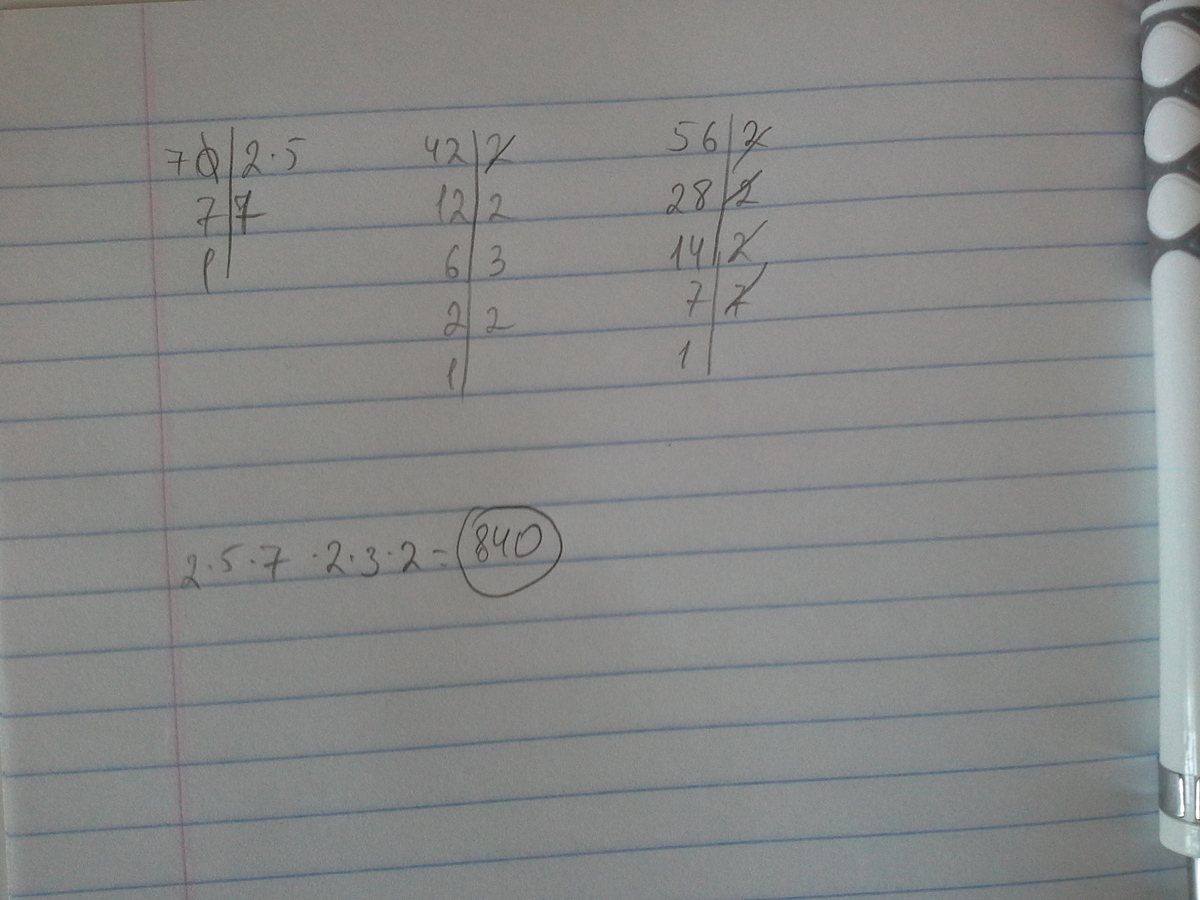 70|2·5
7|7
1|
42|2
12|2
6|3
2|2
1|
56|2
28|2
14|2
7|7
1|
2·5·7·2·3·2=840